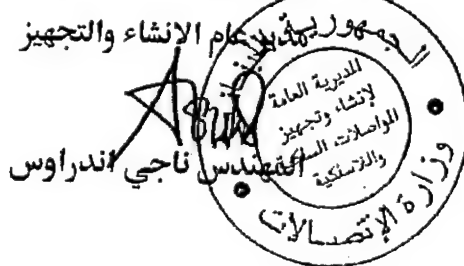 مدير عام الانشاء والتجهيز
المهندس ناجي اندراوس
الجمهورية
المديرية العامة
لإنشاء وتجهيز
المواصلات السلكية
واللاسلكية
وزارة الإتصالات